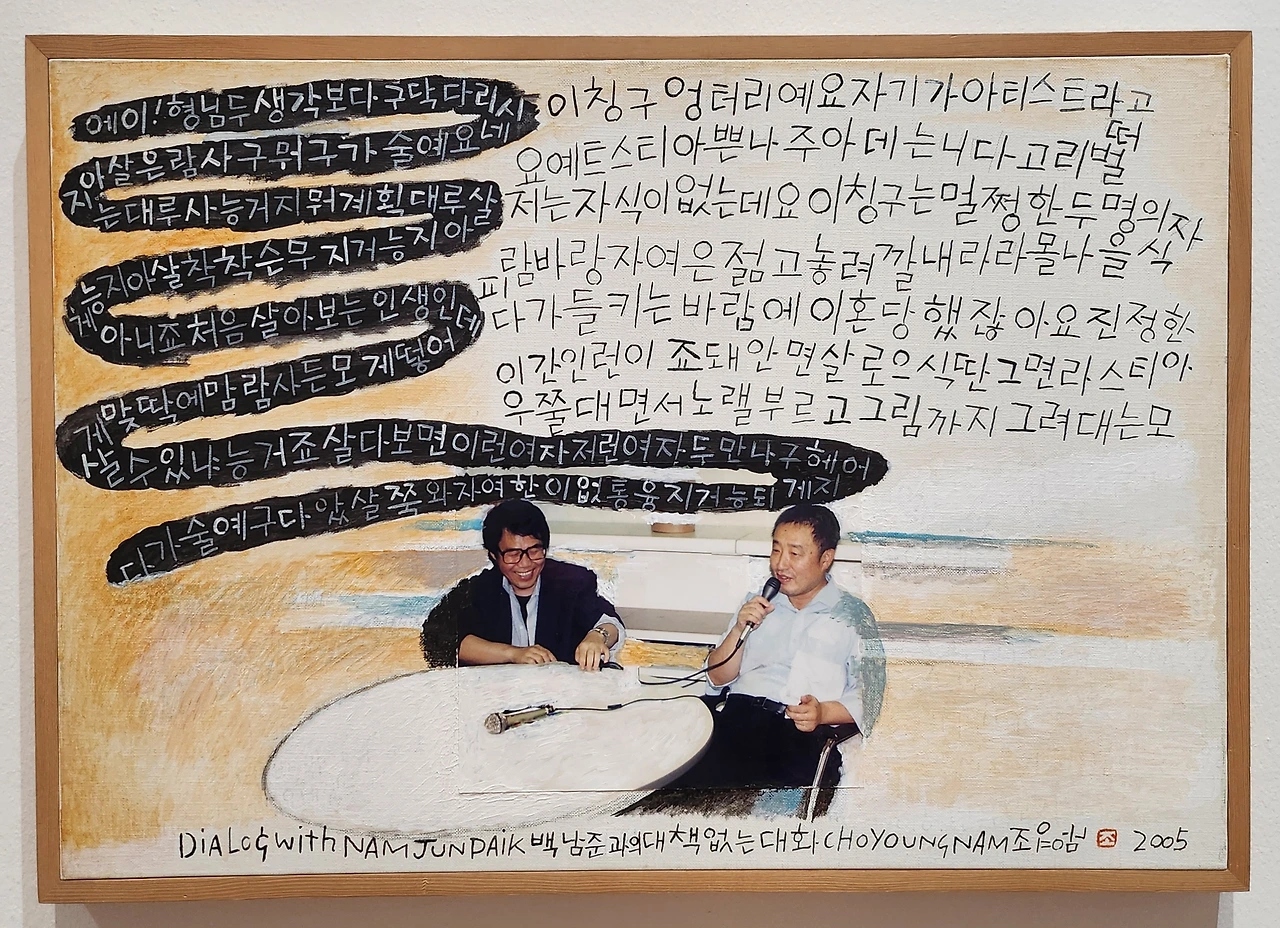 이칭구 엉터리예요자기가아티스트라고
떠
요예트스티아쁜나 주아 데는니다고리벌
저는자식이없는데요이칭구는멀쩡한두명의자
피람바랑자여은젊고놓려깔내라라몰나을식
다가들키는바람에이혼당했잖아요진정한
이간인런이 죠돼안면살로으식딴그면라스티아
우쭐대면서노랠부르고그림까지그려대는모
에이!형님두생각보다구닥다리시
지아살은람사구뭐구가 술예요네
는대루사능거지뭐계획대루살
능지아살착착슨무지거능지아
게아니죠처음살아보는인생인데
맞딱에맘람사든모게떻어
게살수있냐능거죠살다보면이런여자저런여자두만나구헤어
다가술예구다았살쭉와자여한이없통융지겨능되게지
DiALoGwith NAM JUN PAiK 백남준과의대책없는대화 CHOYOUNGNAM조영남 2005